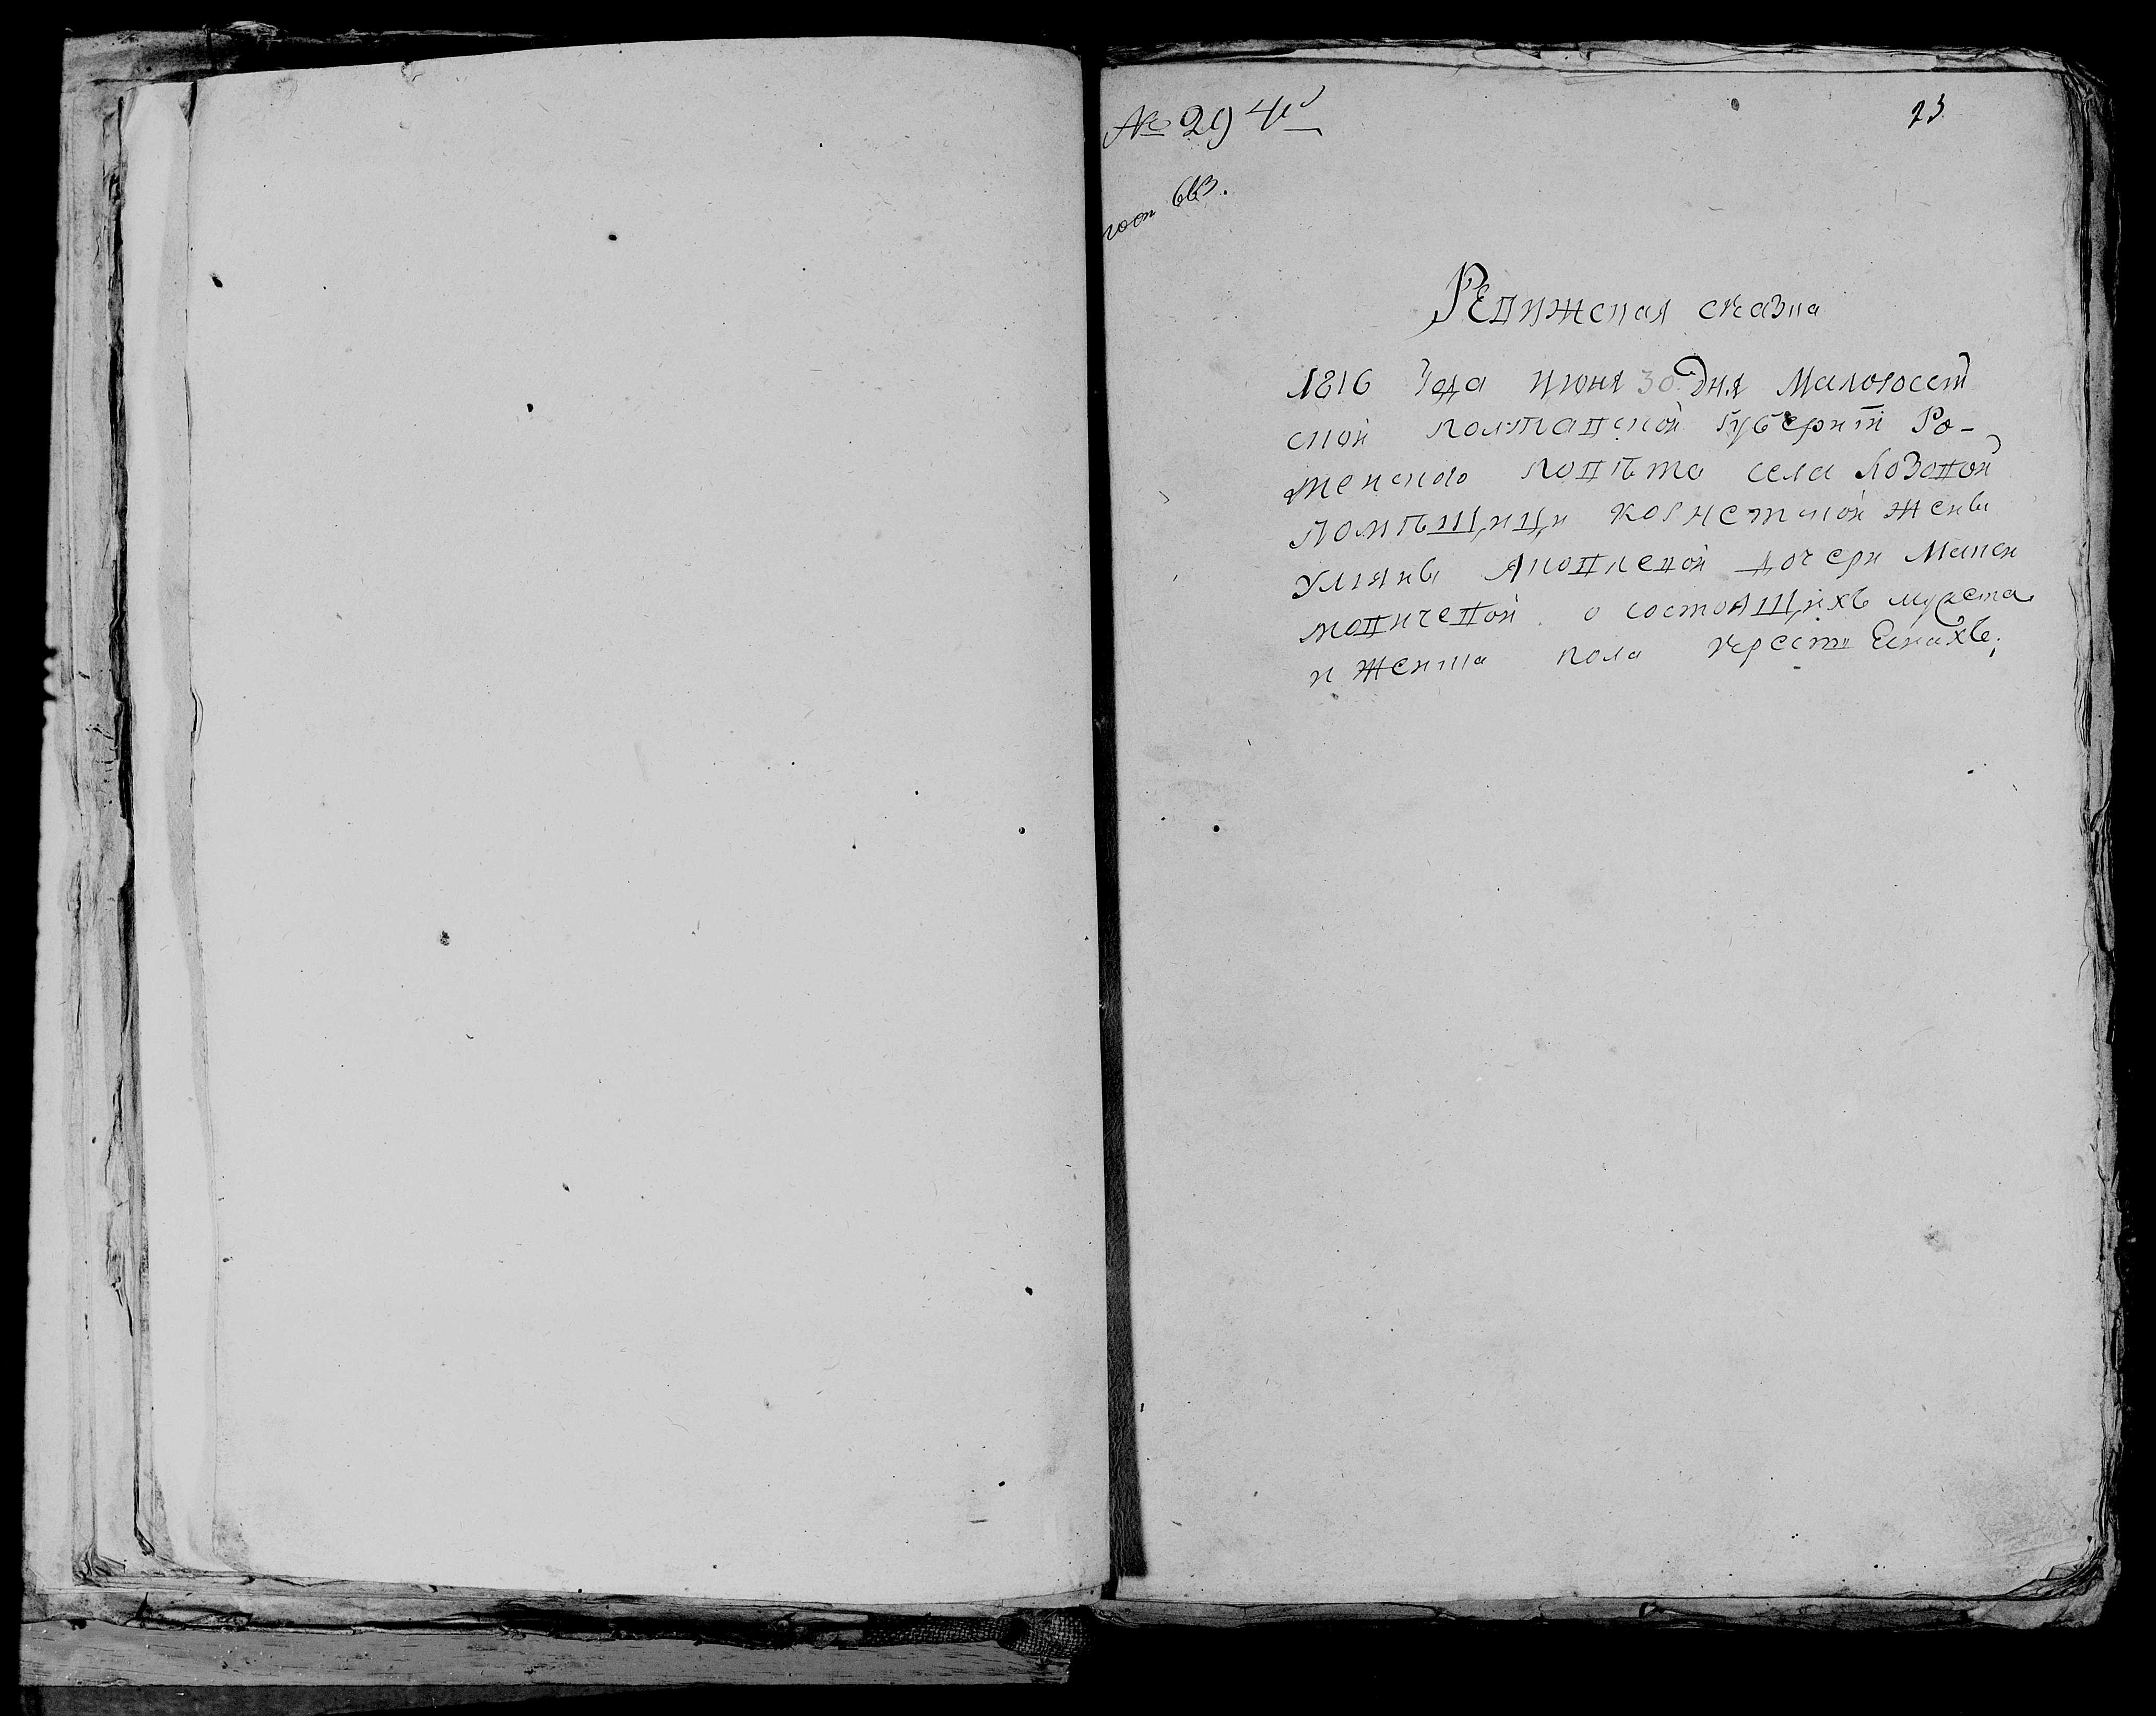 № 294й
23
Ревижская сказка
1816 года июня 30 дня Малоросст
ской полтавской губернїи Ро-
менского повѣта села Лозовой
помѣщици корнетской жены
Улияны Яковлевой дочери Маков
о состоящихъ мужеска
и женска пола крестьенахъ;